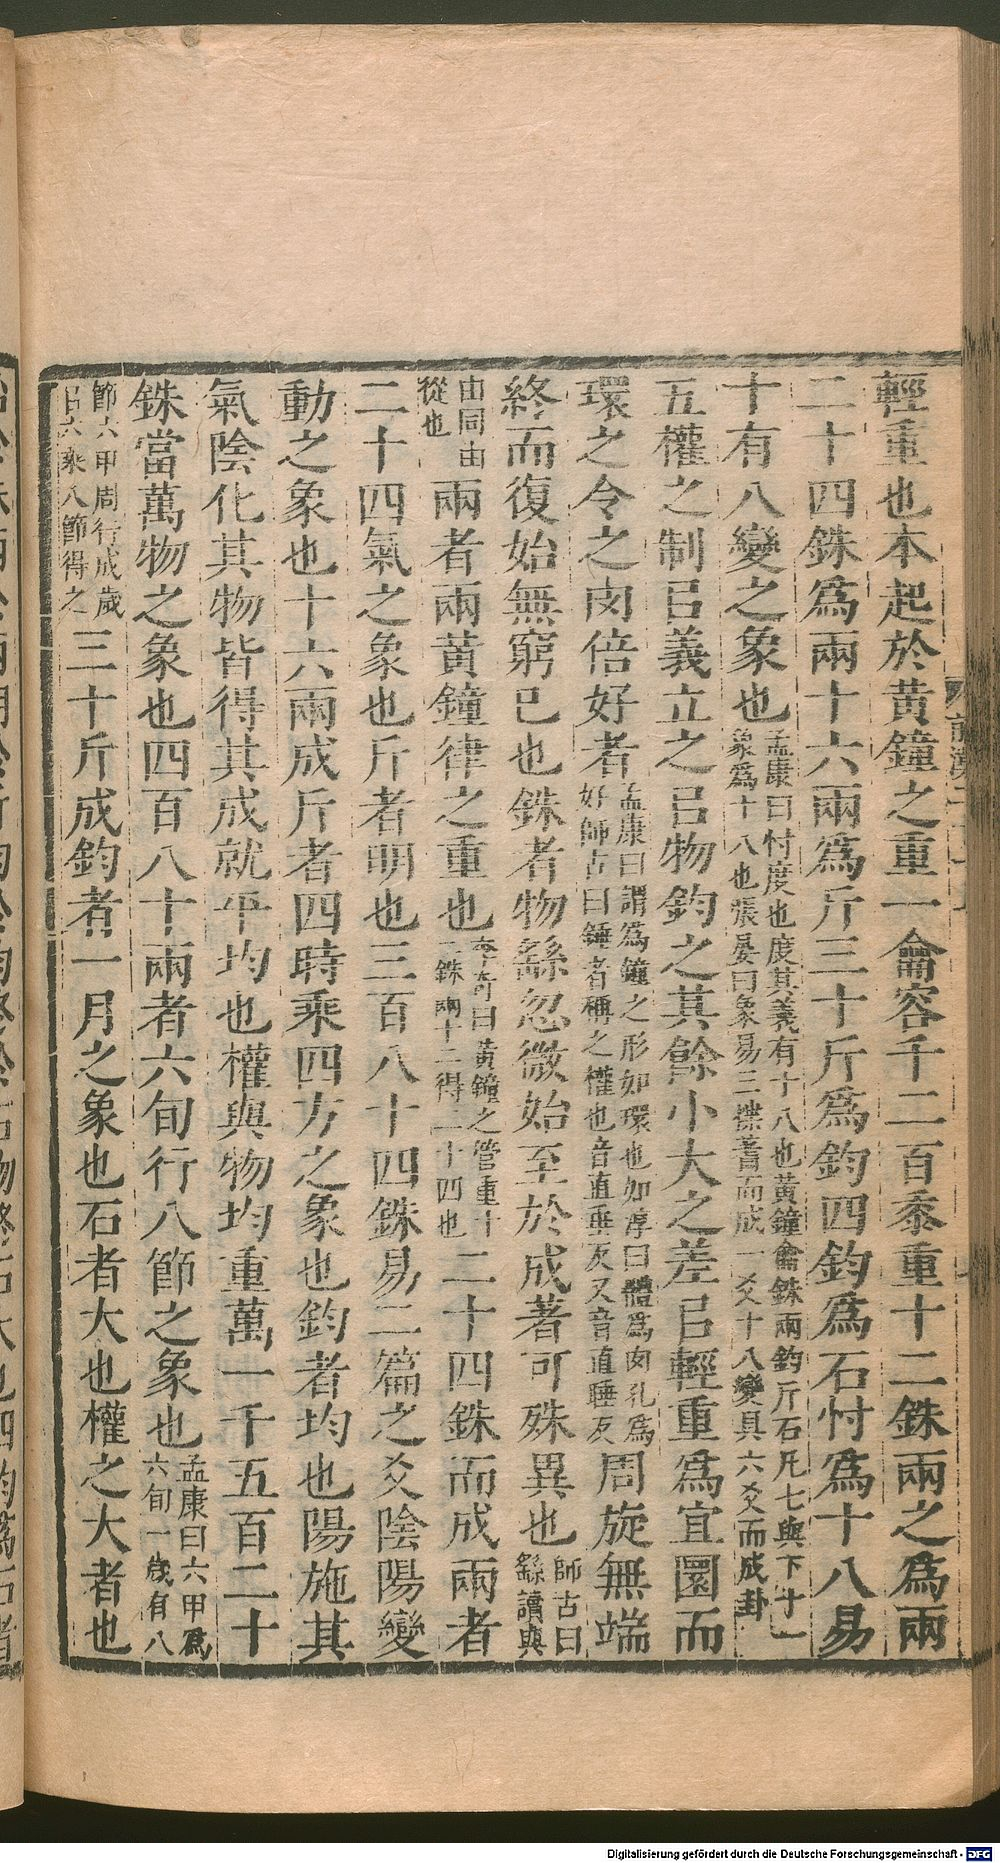 輕重也本起於黃鐘之重一龠容千二百黍重十二銖兩之爲兩
二十四銖爲兩十六兩爲斤三十斤爲鈞四鈞爲石忖爲十八易
十有八變之象也孟康曰忖度也度其義有十八也黃鐘龠銖兩鈞斤石凡七與下十一象爲十八也張晏曰象易三揲蓍而成一爻十八變具六爻而成卦
五權之制㠯義立之㠯物鈞之其餘小大之差㠯輕重爲宜圜而
環之令之肉倍好者孟康曰謂爲鐘之形如環也如淳曰體爲肉孔爲好師古曰錘者稱之權也音直垂反又音直睡反周旋無端
終而復始無窮已也銖者物繇忽微始至於成著可殊異也師古曰繇讀與
由同由從也兩者兩黃鐘律之重也李奇曰黃鐘之管重十二銖兩十二得二十四也二十四銖而成兩者
二十四氣之象也斤者明也三百八十四銖易二篇之爻陰陽變
動之象也十六兩成斤者四時乘四方之象也鈞者均也陽施其
氣陰化其物皆得其成就平均也權與物均重萬一千五百二十
銖當萬物之象也四百八十兩者六旬行八節之象也孟康曰六甲爲六旬一歲有八
節六甲周行成歲㠯六乘八節得之三十斤成鈞者一月之象也石者大也權之大者也
前漢二十
Digitalisierung gefördert durch die Deutsche Forschungsgemeinschaft - DFG